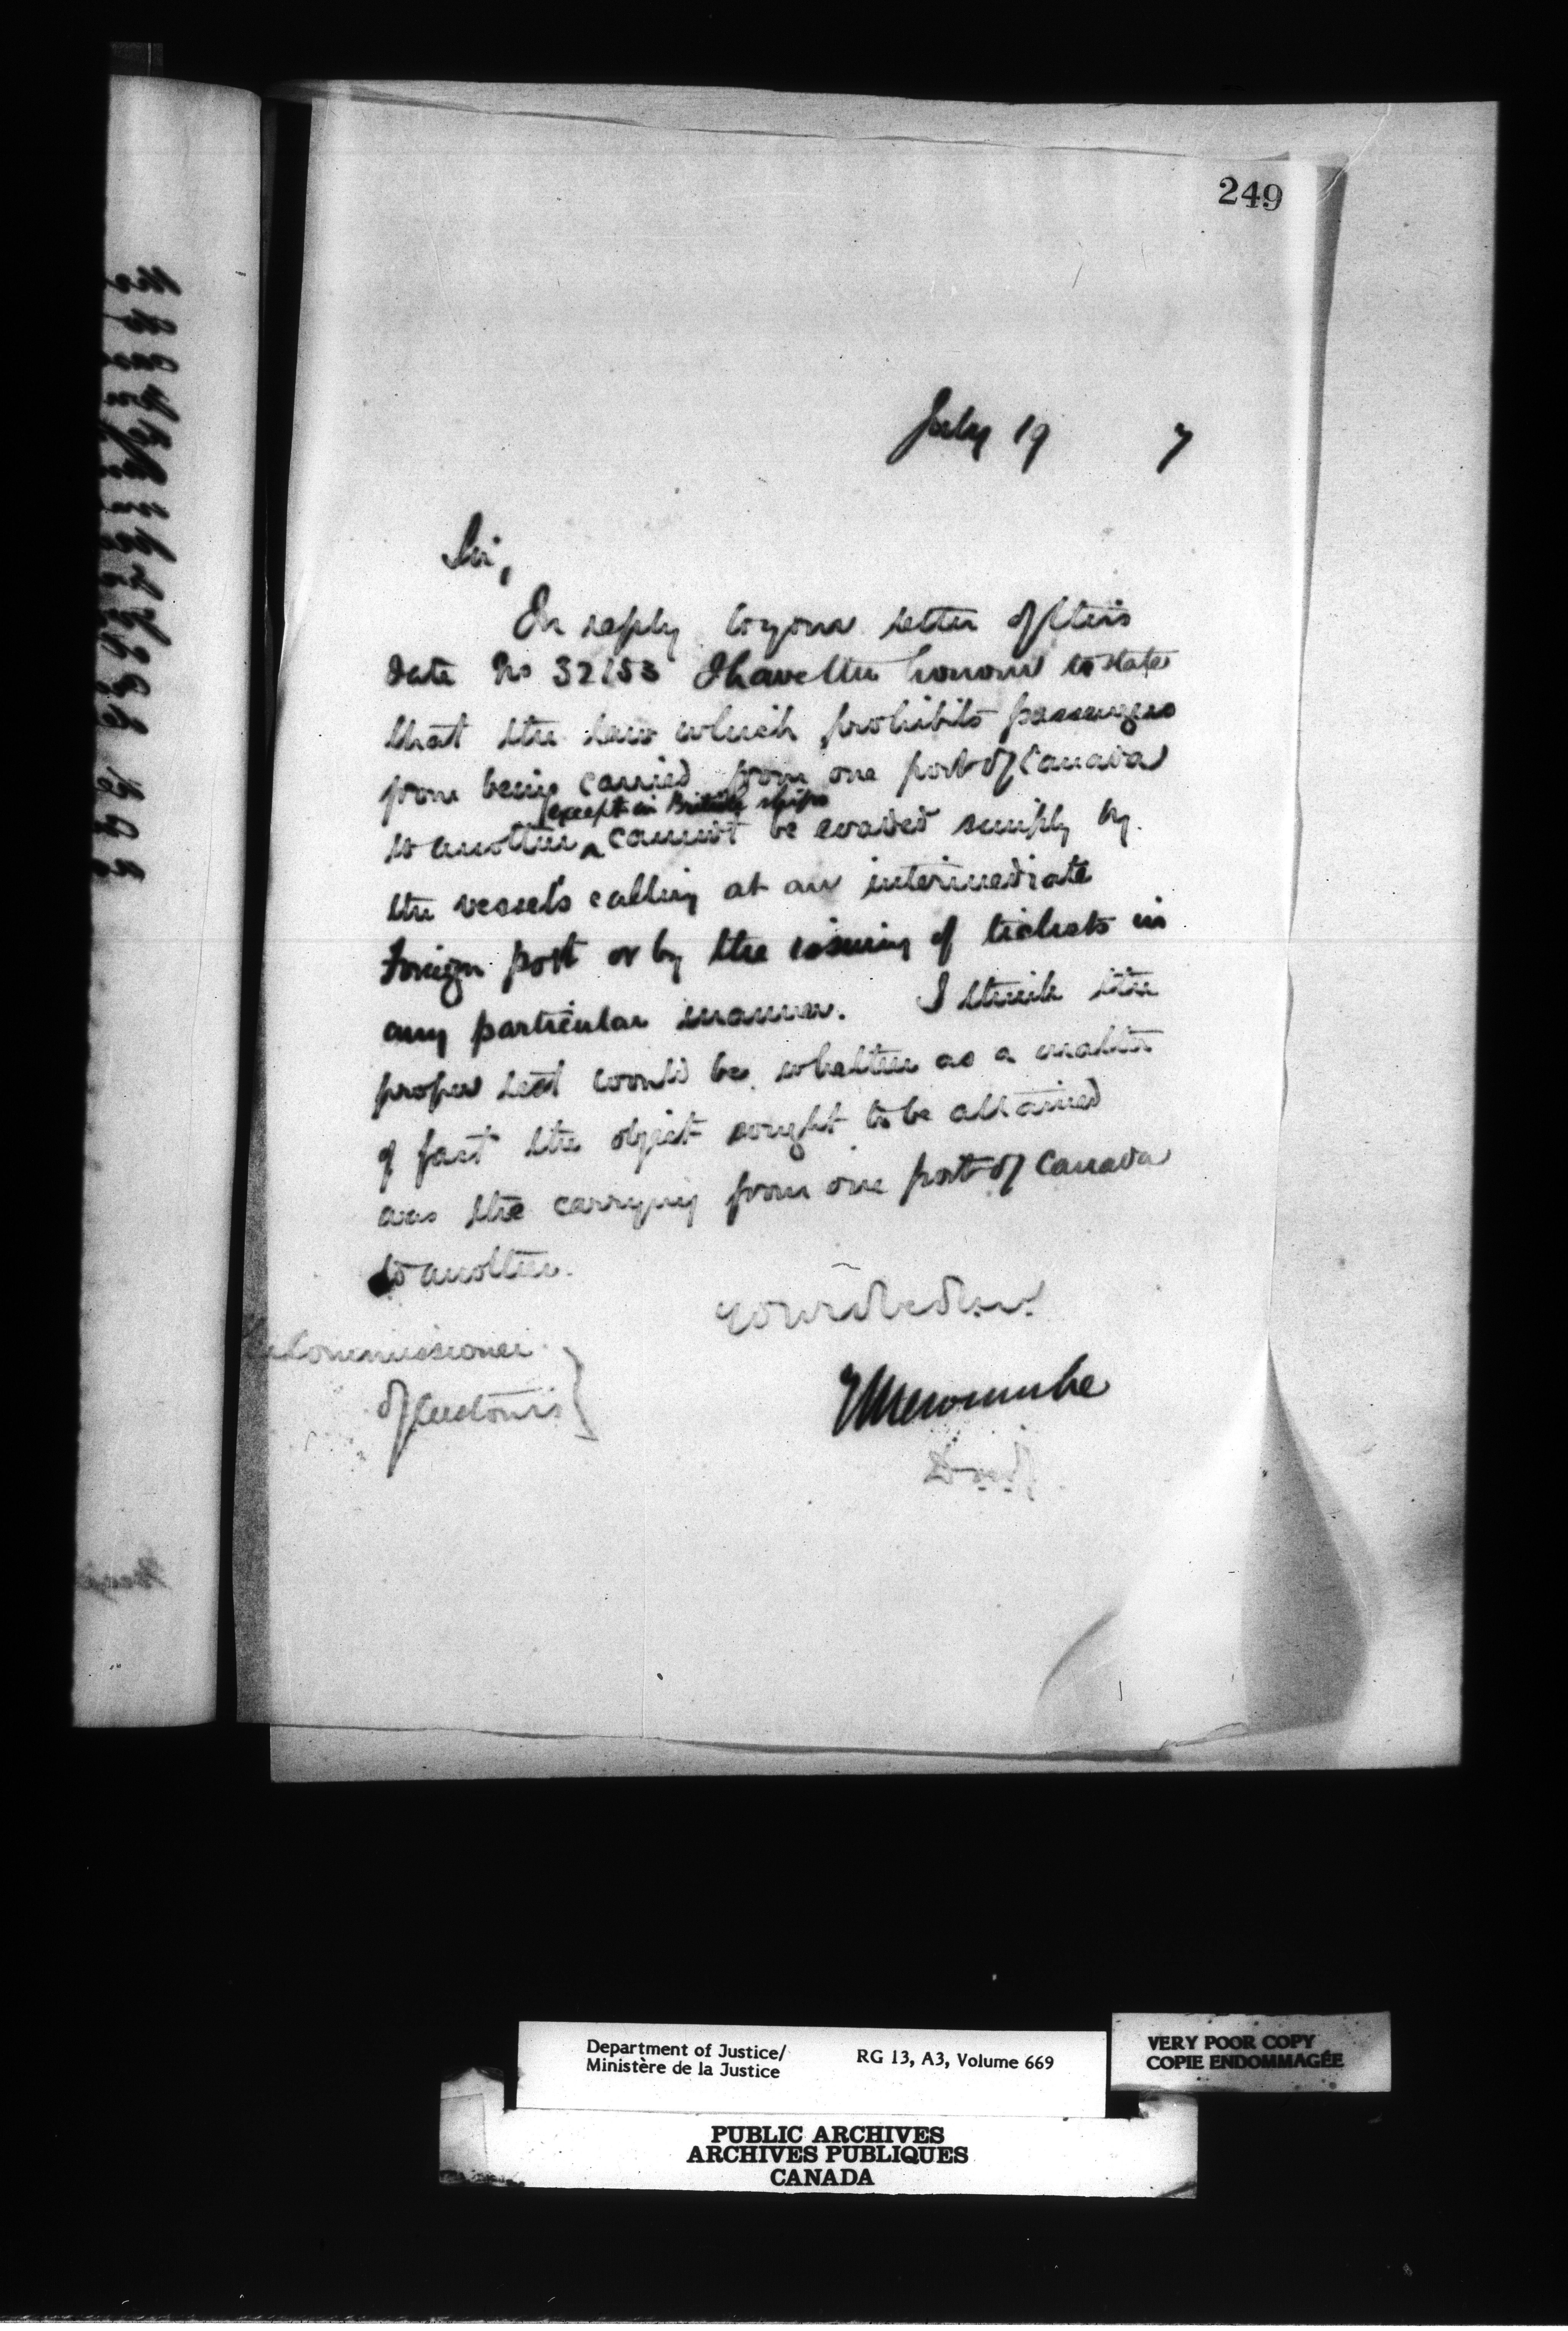 249
July 19 7
Sir,
In reply to your letter of this
date No 32153 I have the honour to state
that the law which prohibits passengers
from being carried from one port of Canada
except in British ships
to another ^ cannot be evaded simply by
the vessels calling at an intermediate
Foreign port or by the issuing of tickets in
any particular manner. I think the
proper test would be whether as a matter
of fact the object sought to be attained
was the carrying from one port of Canada
to another.
Commissioner
of Customs
E L Newcombe
Department of Justice/
Ministère de la Justice
RG 13, A3, Volume 669
VERY POOR COPY
COPIE ENDOMMAGÉE
PUBLIC ARCHIVES
ARCHIVES PUBLIQUES
CANADA